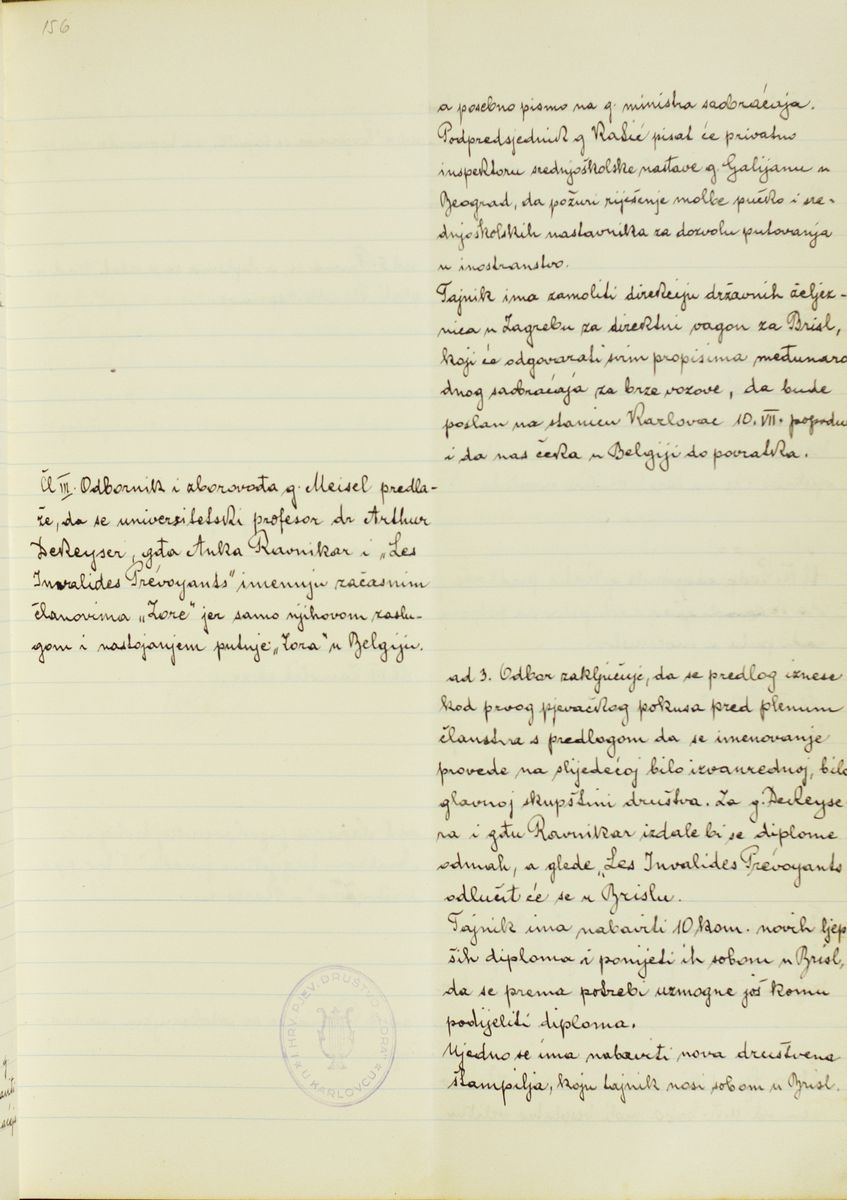 156
a posebno pismo na g. ministra saobraćaja.
Podpredsjednik g Kašić pisat će privatno
inspektoru srednjoškolske nastave g. Galijanu u
Beograd, da požuri riješenje molbe pučko i sre-
dnjoškolskih nastavnika za dozvolu putovanja
u inostranstvo.
Tajnik ima zamoliti direkciju državnih željez-
nica u Zagrebu za direktni vagon za Brisl,
koji će odgovarati svim propisima međunaro
dnog saobraćaja za brze vozove, da bude
poslan na stanicu Karlovac 10. VII. popodu
i da nas čeka u Belgiji do povratka.
Čl III. Odbornik i zborovođa g. Meisel predla-
že, da se univerzitetski profesor dr Arthur
DeKeyser, gđa Anka Ravnikar i „Les
Invalides Prévoyants" imenuju začasnim
članovima „Zore" jer samo njihovom zaslu-
gom i nastojanjem putuje „Zora" u Belgiju.
ad 3. Odbor zaključuje, da se predlog iznese
kod prvog pjevačkog pokusa pred plenum
članstva s predlogom da se imenovanje
provede na slijedećoj bilo izvanrednoj, bilo
glavnoj skupštini društva. Za g. DeKeyse
ra i gđu Ravnikar izdale bi se diplome
odmah, a glede „Les Invalides Prévoyants
odlučit će se u Brislu.
Tajnik ima nabaviti 10 kom. novih ljep
ših diploma i ponijeti ih sobom u Brisl,
da se prema potrebi uzmogne još komu
podijeliti diploma.
Ujedno se ima nabaviti nova društvena
štampilja, koju tajnik nosi sobom u Brisl.
I HRV. PJEV. DRUŠTVO „ZORA"
U KARLOVCU